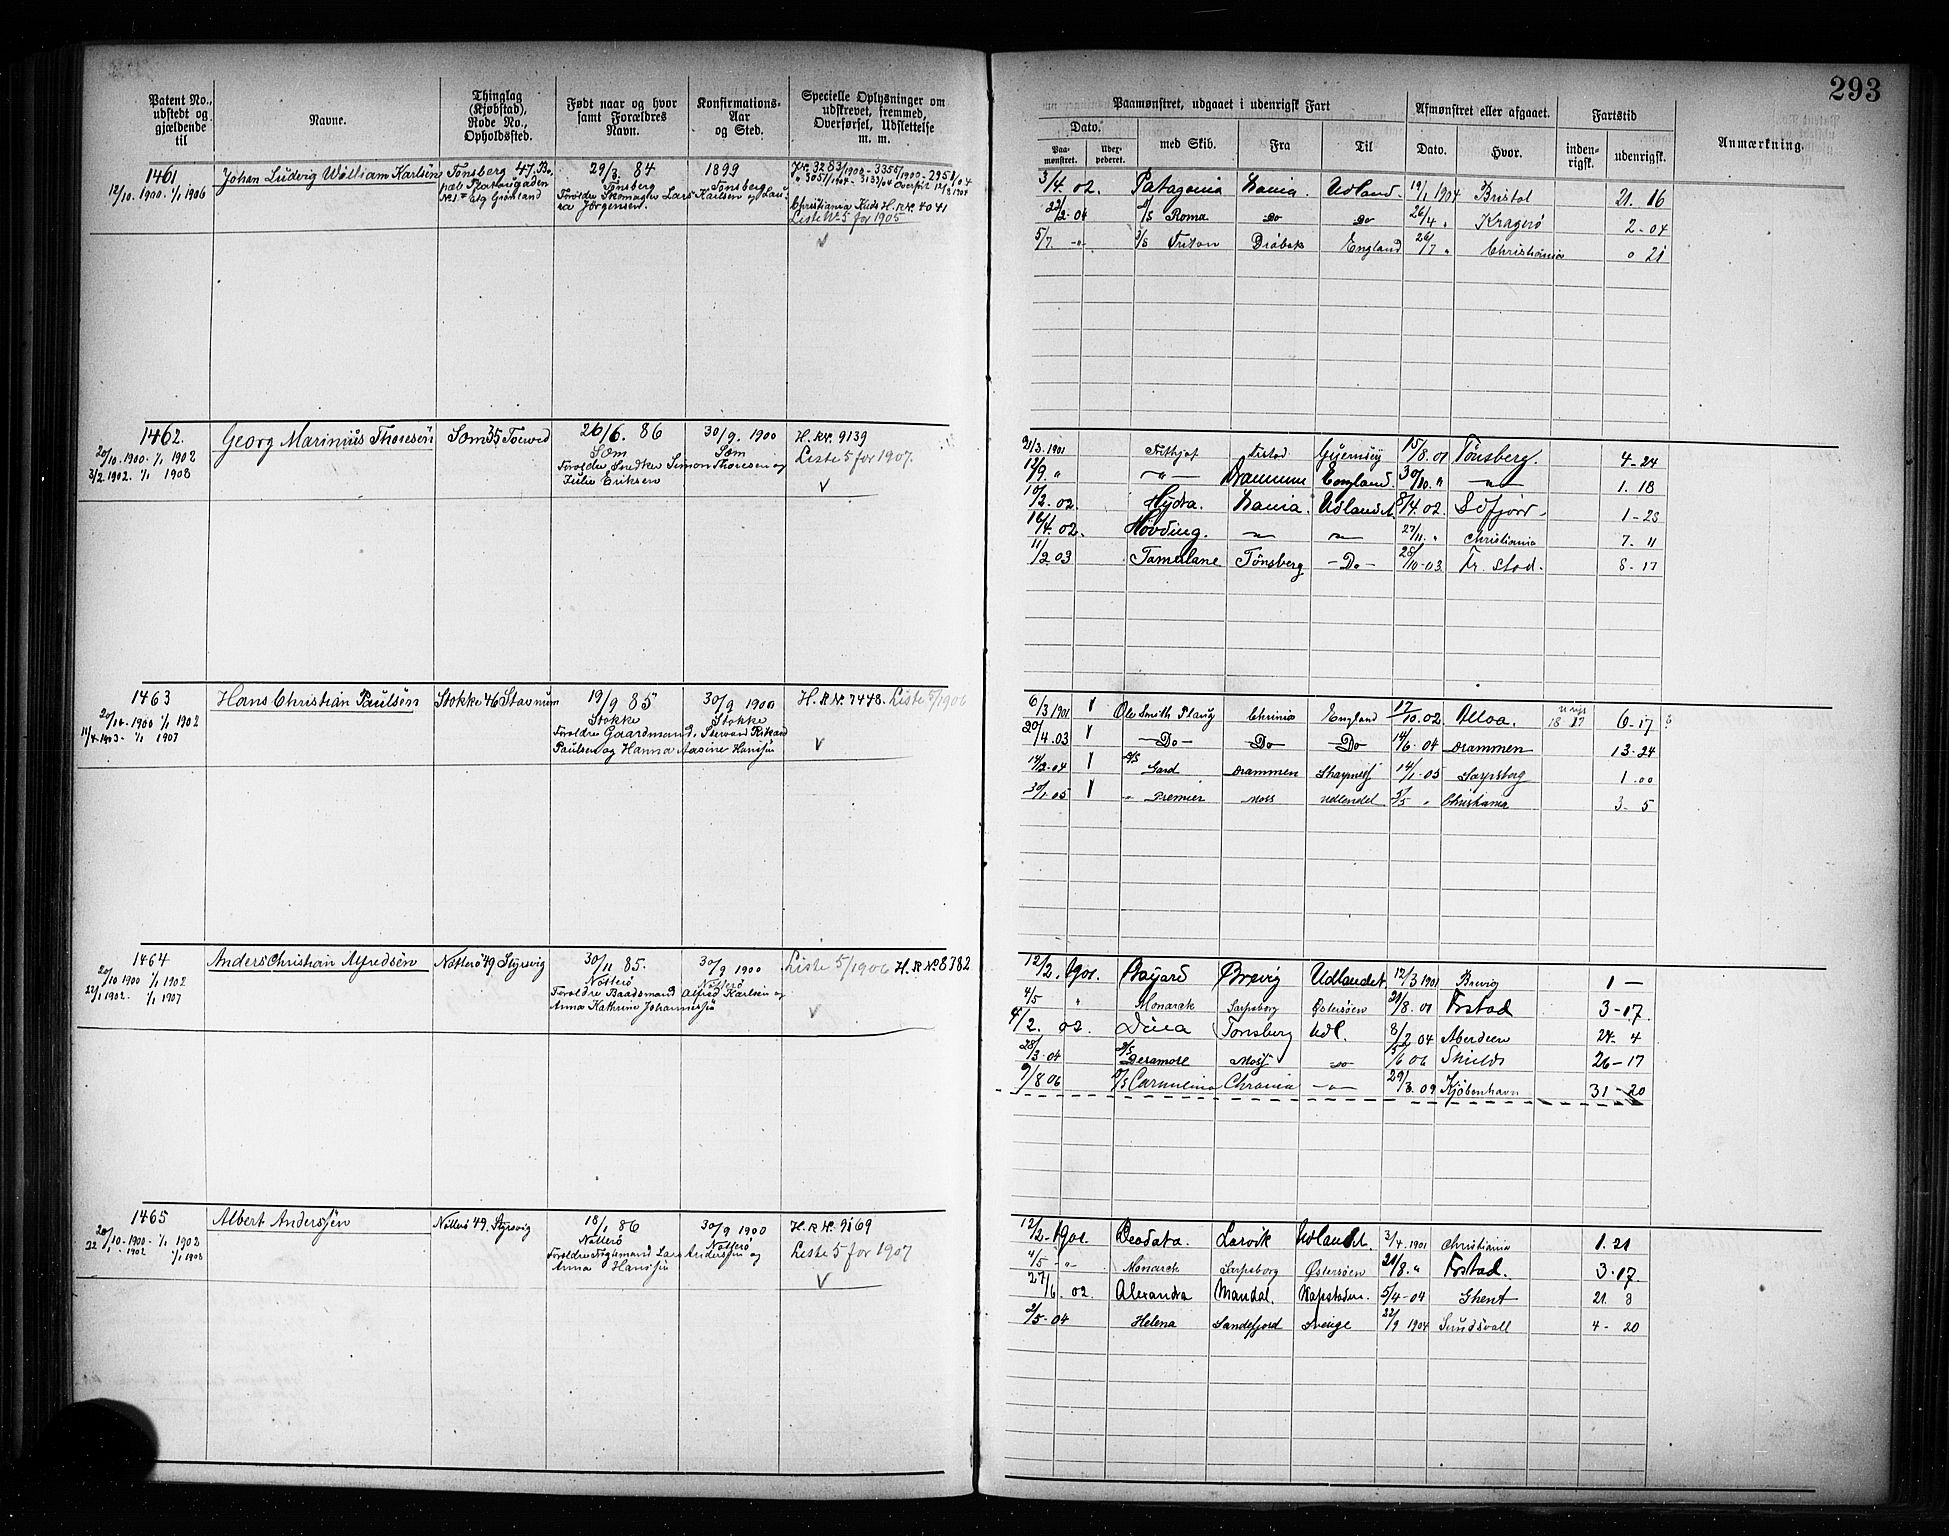 293
Patent No., udstedt og gjældende til
Navne.
Thinglag (Kjøbstad), Rode No., Opholdssted.
Født naar og hvor samt Forældres Navn.
Konfirmations-Aar og Sted.
Specielle Oplysninger om udskrevet, fremmed, Overførsel, Udslettelse m. m.
Paamønstret, udgaaet i udenrigsk Fart
Afmønstret eller afgaaet.
Fartstid
Anmærkning.
Dato.
Paa-mønstret.
med Skib.
Fra
Til
Dato.
Hvor.
inden-rigsk.
udenrigsk.
1461
12/10. 1900. 1/1 1906
Johan Ludvig William Karlsen
Tønsberg 47.
No 1 Grønland
29/3. 84
Tønsberg
Forældre Skomager Lars Karlsen og Laura Jørgensen.
1899
Tønsberg
Christiania Kreds H. R. No. 4041
Liste No. 5 for 1905
3/4. 02. Patagonia Udland. 19/1 1904 Bristol 21. 16
22/2-04 Roma Do Do 26/4 " Kragerø 2-04
5/7. -"- Triton Drøbak England 26/7 " Christiania 0 21
1462.
20/10. 1900. 1/1 1902
3/2 1902. 1/1 1908
Georg Marinius Thoresen
Sæm 35
26/6. 86
Sæm
Julie Eriksen
Simon Thoresen og
30/9. 1900
Sæm
H. R. No. 9139
Liste 5 for 1907.
21/3. 1901 Fithjof Guernsey 15/8. 01 Tønsberg. 4-24
12/9. " -"- Drammen England. 30/10. " -"- 1. 18
10/2. 02. Hydra. Udlandet. 8/4. 02. 1-28
16/4. 02. Høvding. -"- -"- 27/11. " Christiania 7. 11
11/2 03 Tamerlane Tønsberg -Do- 28/10-03. Fr. Stad. 8-17
1463
20/10-1900 1/1 1902
11/4-1903. 1/1 1907
Hans Christian Paulsen
Stokke 46
19/9 85
Stokke
Forældre Gaardmand
Paulsen og Hanna Maxine Hanssen
30/9 1900
Stokke
H. R. No. 7448. Liste 5/1906
6/3 1901 Ole Smith Ploug Chrinia England 17/10. 02 Alloa. 18 17 6-17
20/4. 03 -Do- -Do- -Do- 14/6. 04 Drammen 13-24
14/12-04 Gard Drammen 14/1-05 Sarpsborg 1. 00
30/1. 05 " Premier Moss Udlandet 5/5 " Christiania 3-5
1464
20/10 1900 1/1 1902
22/1 1902. 1/1 1907
Anders Christian Alfredsen
Nøtterø 49
30/11 85.
Nøtterø
Forældre Baadsmand Alfred Karlsen og
Anna Kathrine Johannessen
30/9 1900
Nøtterø
Liste 5/1906 H. R. No. 8782
12/2. 1901. Bayard Brevig Udlandet 12/3 1901 Brevig 1 —
4/5 " Monarck Sarpsborg Østersøen 21/8. 01 Frstad 3-17.
4/2. 02. Dina Tønsberg Udl. 8/2 04 Aberdeen 24. 4
28/3-04 Deramore Moss Do 15/6 06 Shields 26-17
9/8 06 Carmelina Chrania -"- 29/3. 09 Kjøbenhavn 31-20
1465
20/10. 1900. 1/1 1902
22/1. 1902 1/1 1908
Albert Anderssen
Nøtterø 49.
18/1 86
Nøtterø
Anna Hanssen
Lars Anderssen og
30/9 1900
Nøtterø
H. R. No. 9169
Liste 5 for 1907
12/2-1901. Deodata. Larvik Udlandet. 3/4. 1901 Christiania 1. 21
4/5 -"- Monarck Sarpsborg Østersøen 21/8. " Frstad. 3-17.
27/6. 02. Alexandra Mandal. Kapstaden. 5/4-04 Ghent 21. 8
2/5-04 Helena Sandefjord Sverige 22/9 1904 Sundsvall 4-20